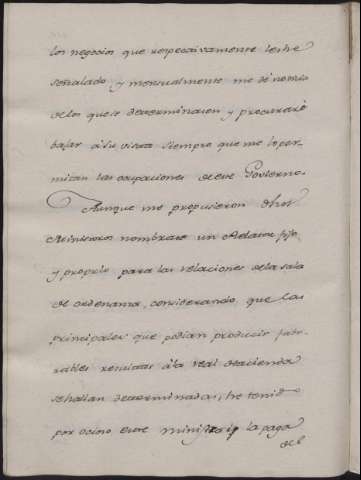 los negocios que respectivamente les he
señalado y mensualmente me dé noticia
de los que se determinaren y procuraré
bajar a su vista siempre que me lo per-
mitan las ocupaciones de este Govierno.
Aunque me propusieron dhos
Ministros nombrase un Relator fijo
y proprio para las relaciones de la sala
de ordenanza, considerando que los
principales que podían producir favo-
rables resultas a la real Hacienda
se hallan determinados, he tenido
por ocioso este la paga
del